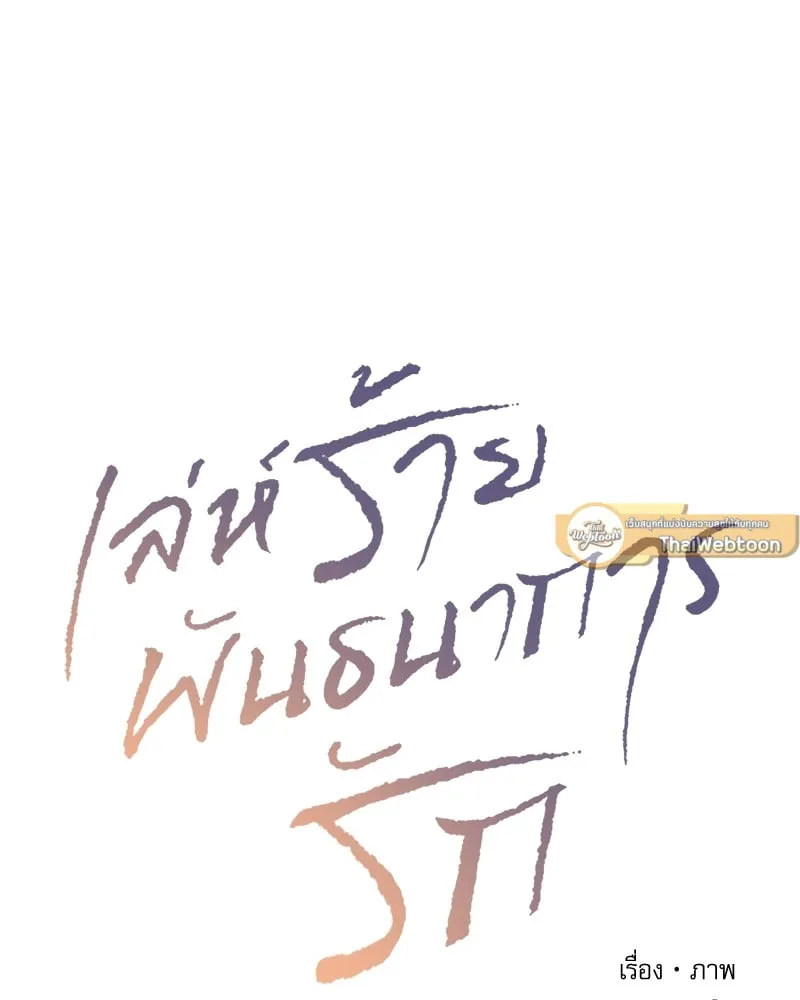 เล่ห์ร้าย
พันธนาการ
รัก
That Webtoon
เว็บสนุกที่แบ่งปันความสุขให้กับทุกคน
ThaiWebtoon
เรื่อง • ภาพ